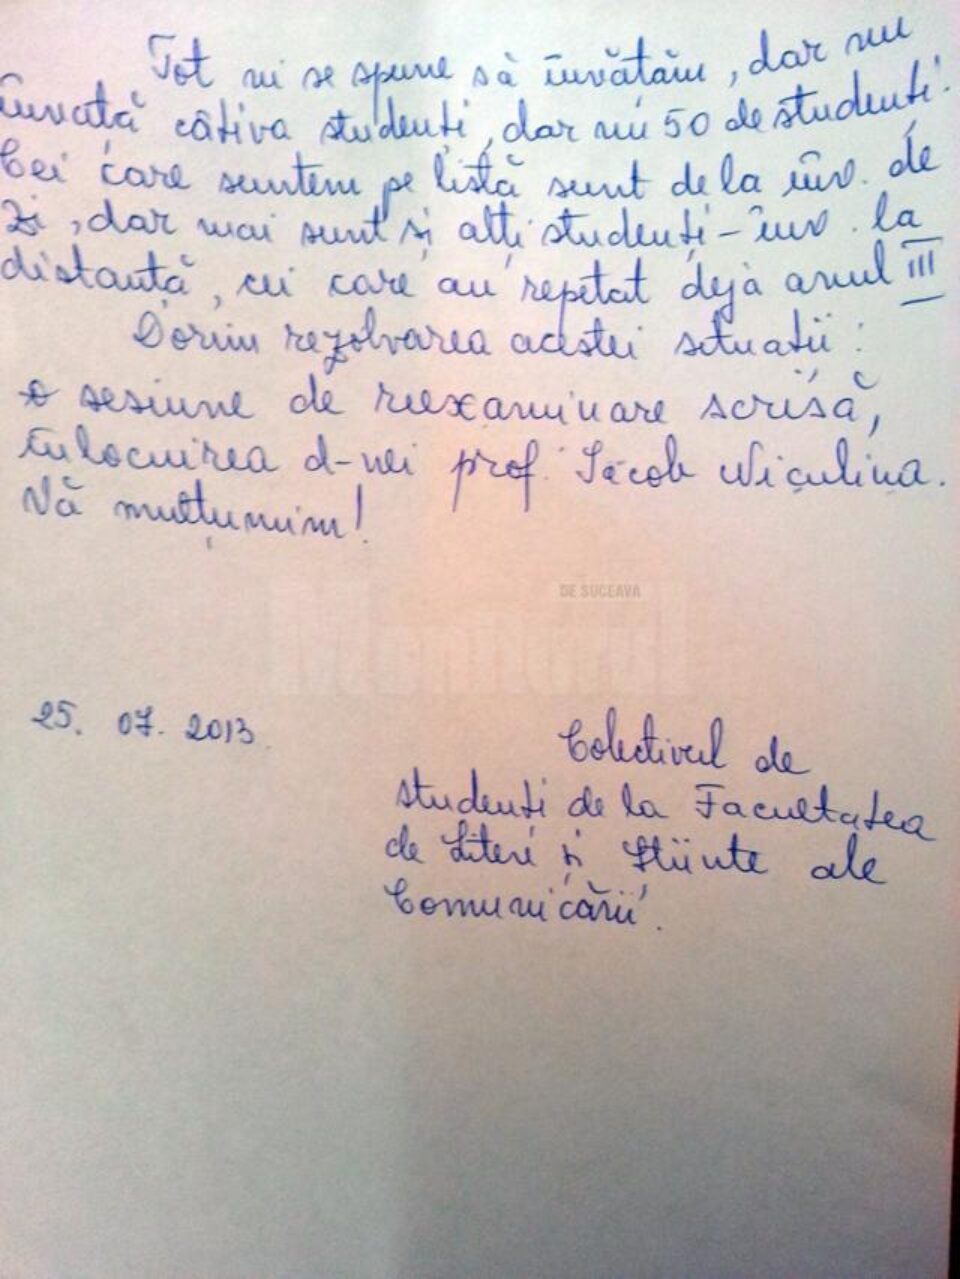 Tot ni se spune să învățăm, dar nu
învață câțiva studenți, dar nu 50 de studenți.
Cei care suntem pe listă sunt de la înv. de
zi, dar mai sunt și alți studenți - înv. la
distanță, cei care au repetat deja anul III
Dorim rezolvarea acestei situații:
o sesiune de reexaminare scrisă,
înlocuirea d-nei prof. Iacob Niculina.
Vă mulțumim!
DE SUCEAVA
Monitorul
25. 07. 2013.
Colectivul de
studenți de la Facultatea
de Litere și Științe ale
Comunicării.